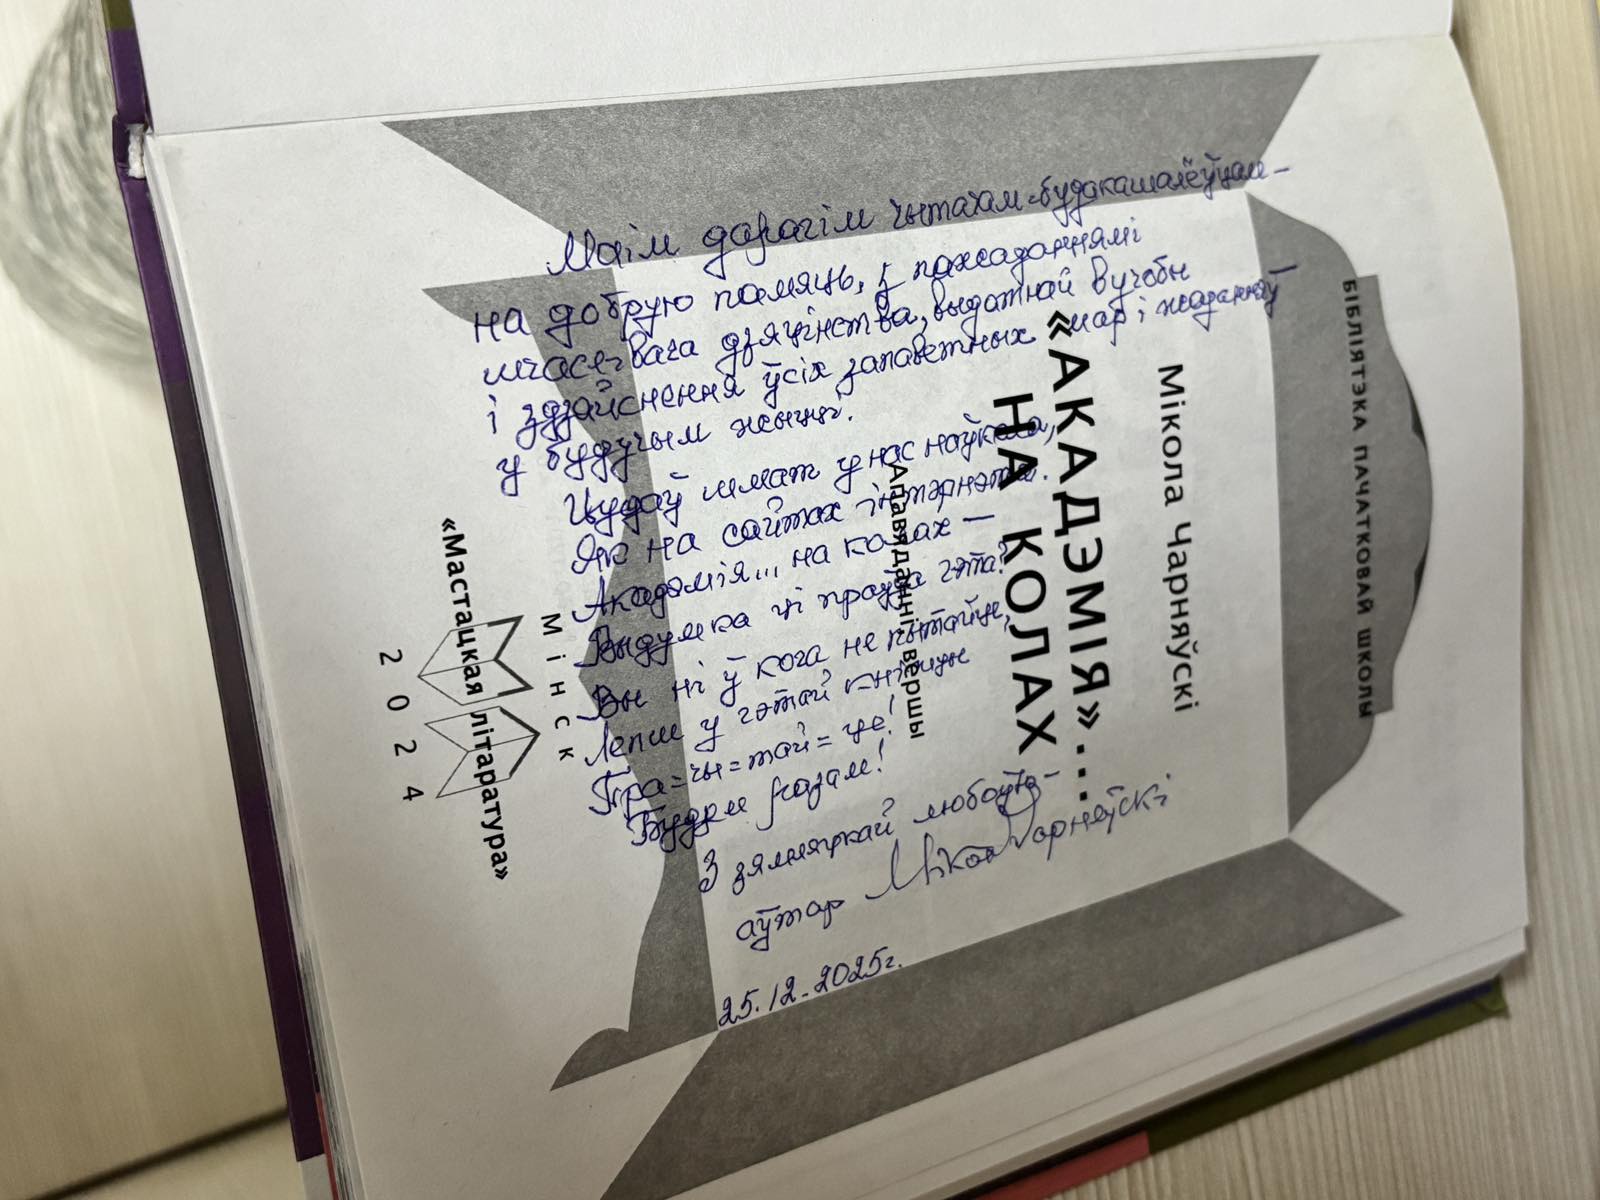 БІБЛІЯТЭКА ПАЧАТКОВАЙ ШКОЛЫ
Мікола Чарняўскі
«АКАДЭМІЯ»...
НА КОЛАХ
Апавяданні, вершы
Мінск
«Мастацкая літаратура»
2024
Маім дарагім чытачам-будакашалёўцам –
на добрую памяць, з пажаданнямі
шчаслівага дзяцінства, выдатнай вучобы
і здзяйснення ўсіх запаветных мар і жаданняў
у будучым жыцці.
Цудаў шмат у нас наўкола,
Як на сайтах інтэрнэта.
Акадэмія... на колах –
Выдумка ці праўда гэта?
Вы ні ў кога не пытайце,
Лепш у гэтай кніжцы
Пра=чы=тай=це!
Будзем разам!
З зямляцкай любоўю –
аўтар Мікола Чарняўскі
25.12.2025г.